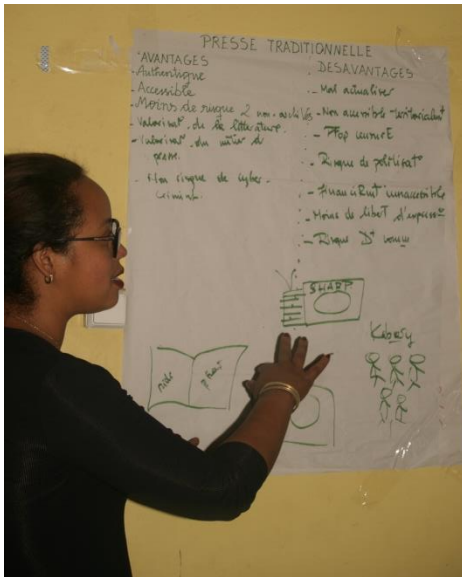 PRESSE TRADITIONNELLE
AVANTAGES
- Authentique
- Accessible
- Moins de risque
- Valorisat° de la littérature.
- Valorisat° du métier de
presse.
- Non risque de cyber-
criminal.
DESAVANTAGES
- Mal actualiser
- Non accessible
- Trop censuré
- Risque de politisat°
- Financièrmt inaccessible
- Moins de libert d'express°
- Risque D+
SHARP
Kabary